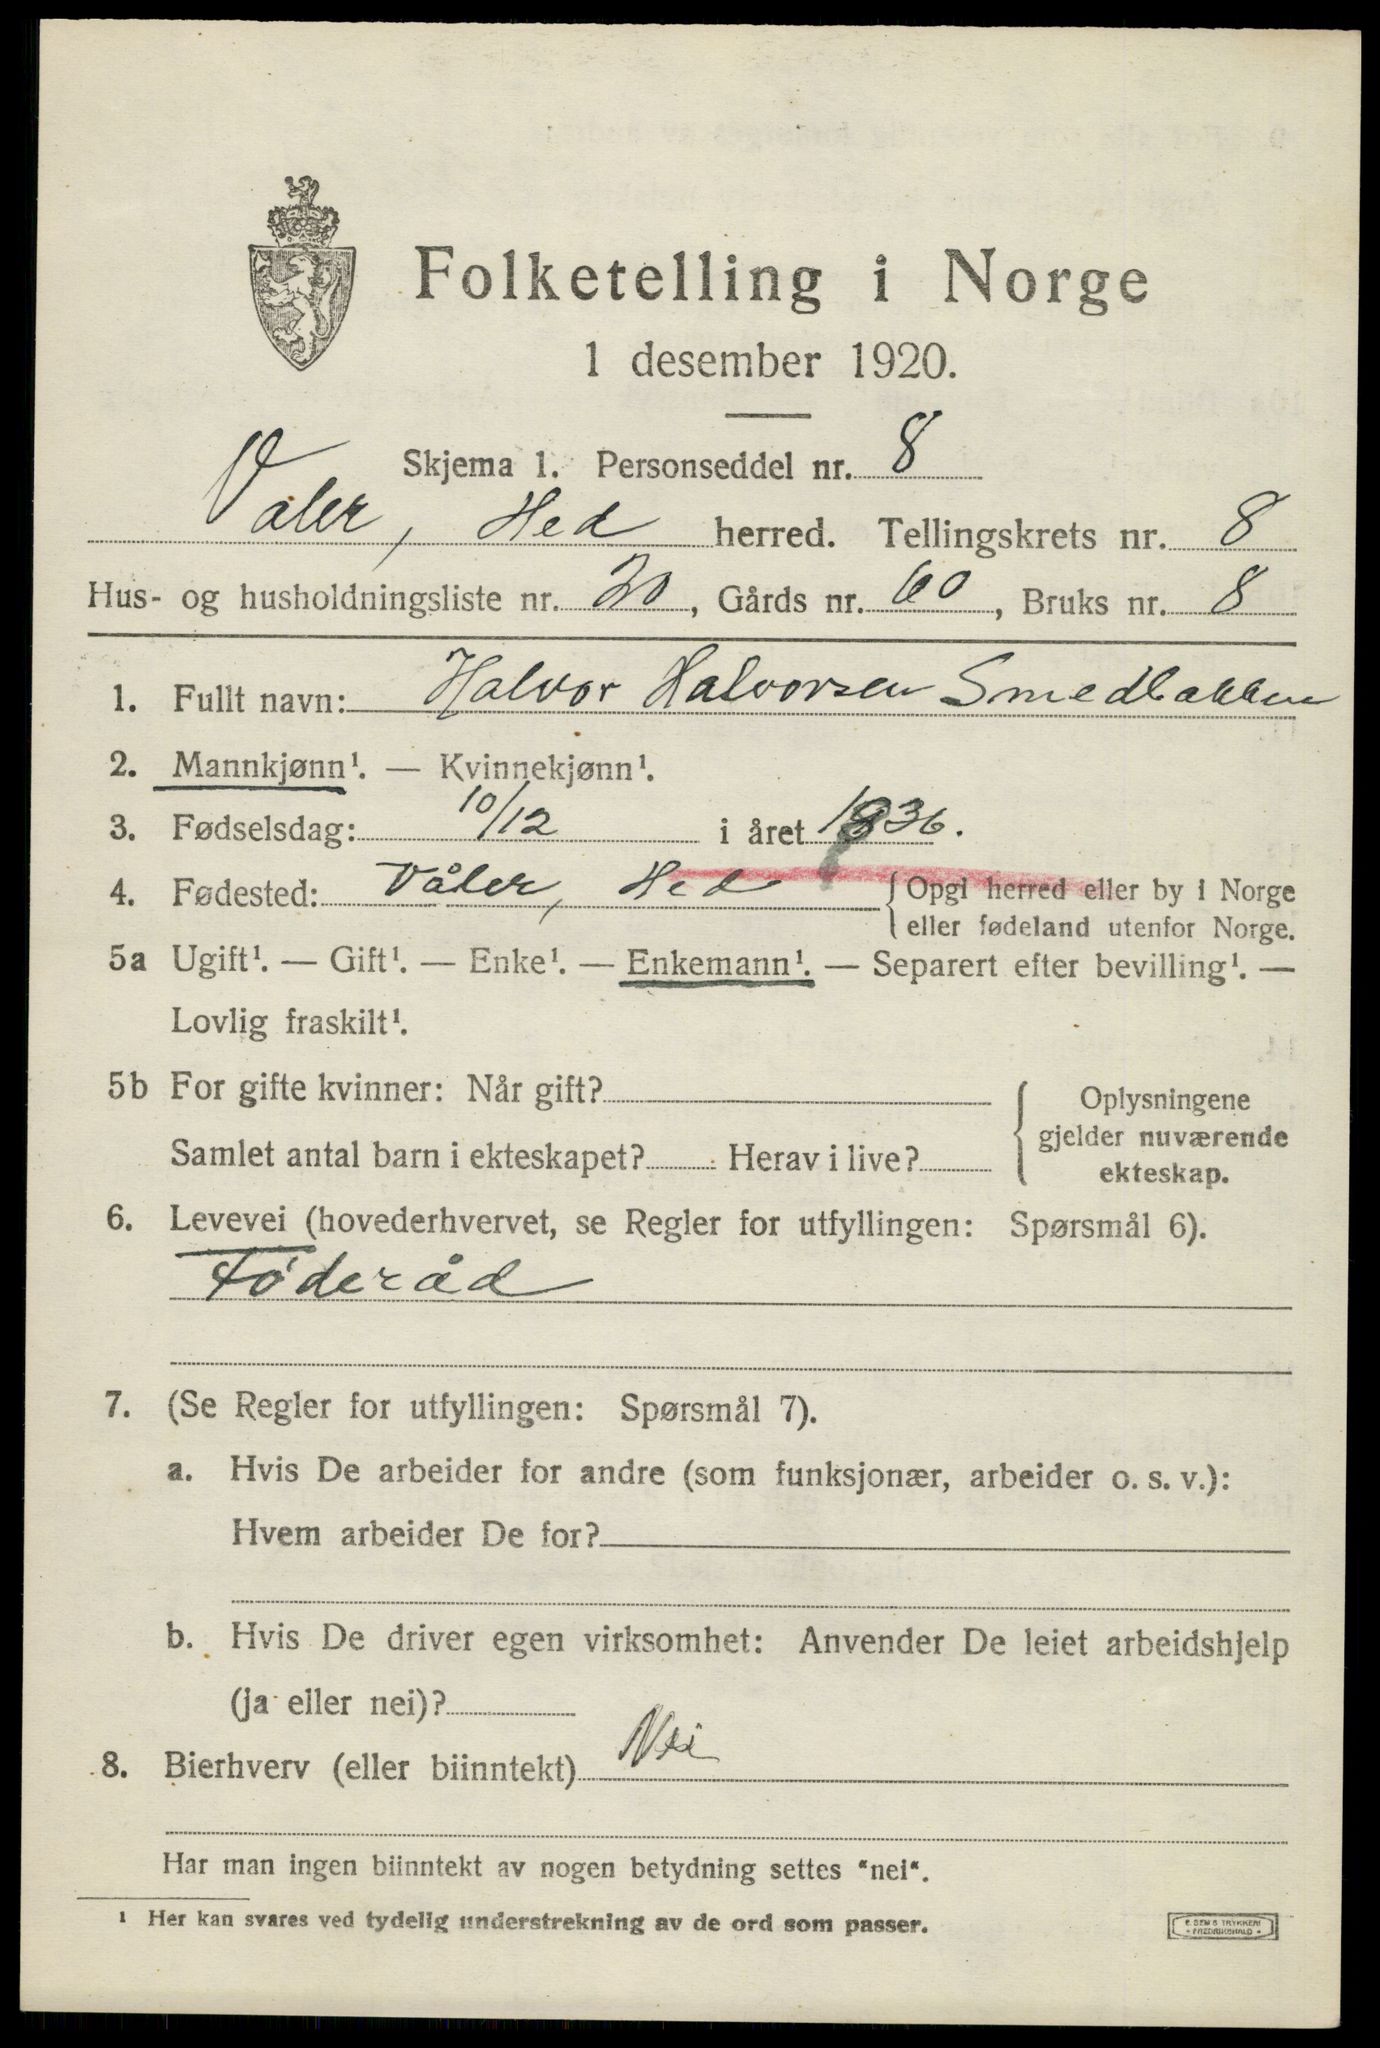 Folketelling i Norge
1 desember 1920.
Skjema 1. Personseddel nr. 8
Våler, Hed herred. Tellingskrets nr. 8
Hus- og husholdningsliste nr. 20, Gårds nr. 60, Bruks nr. 8
1. Fullt navn: Halvor Halvorsen Smedbakken
2. Mannkjønn¹. — Kvinnekjønn¹.
3. Fødselsdag: 10/12 i året 1836.
4. Fødested: Våler, Hed { Opgi herred eller by i Norge
eller fødeland utenfor Norge.
5a Ugift¹. — Gift¹. — Enke¹. — Enkemann¹. — Separert efter bevilling¹. —
Lovlig fraskilt¹.
5b For gifte kvinner: Når gift?
Samlet antal barn i ekteskapet? Herav i live?
Oplysningene
gjelder nuværende
ekteskap.
6. Levevei (hovederhvervet, se Regler for utfyllingen: Spørsmål 6).
Føderåd
7. (Se Regler for utfyllingen: Spørsmål 7).
a. Hvis De arbeider for andre (som funksjonær, arbeider o. s. v.):
Hvem arbeider De for?
b. Hvis De driver egen virksomhet: Anvender De leiet arbeidshjelp
(ja eller nei)?
8. Bierhverv (eller biinntekt) Nei
Har man ingen biinntekt av nogen betydning settes "nei".
¹ Her kan svares ved tydelig understrekning av de ord som passer.